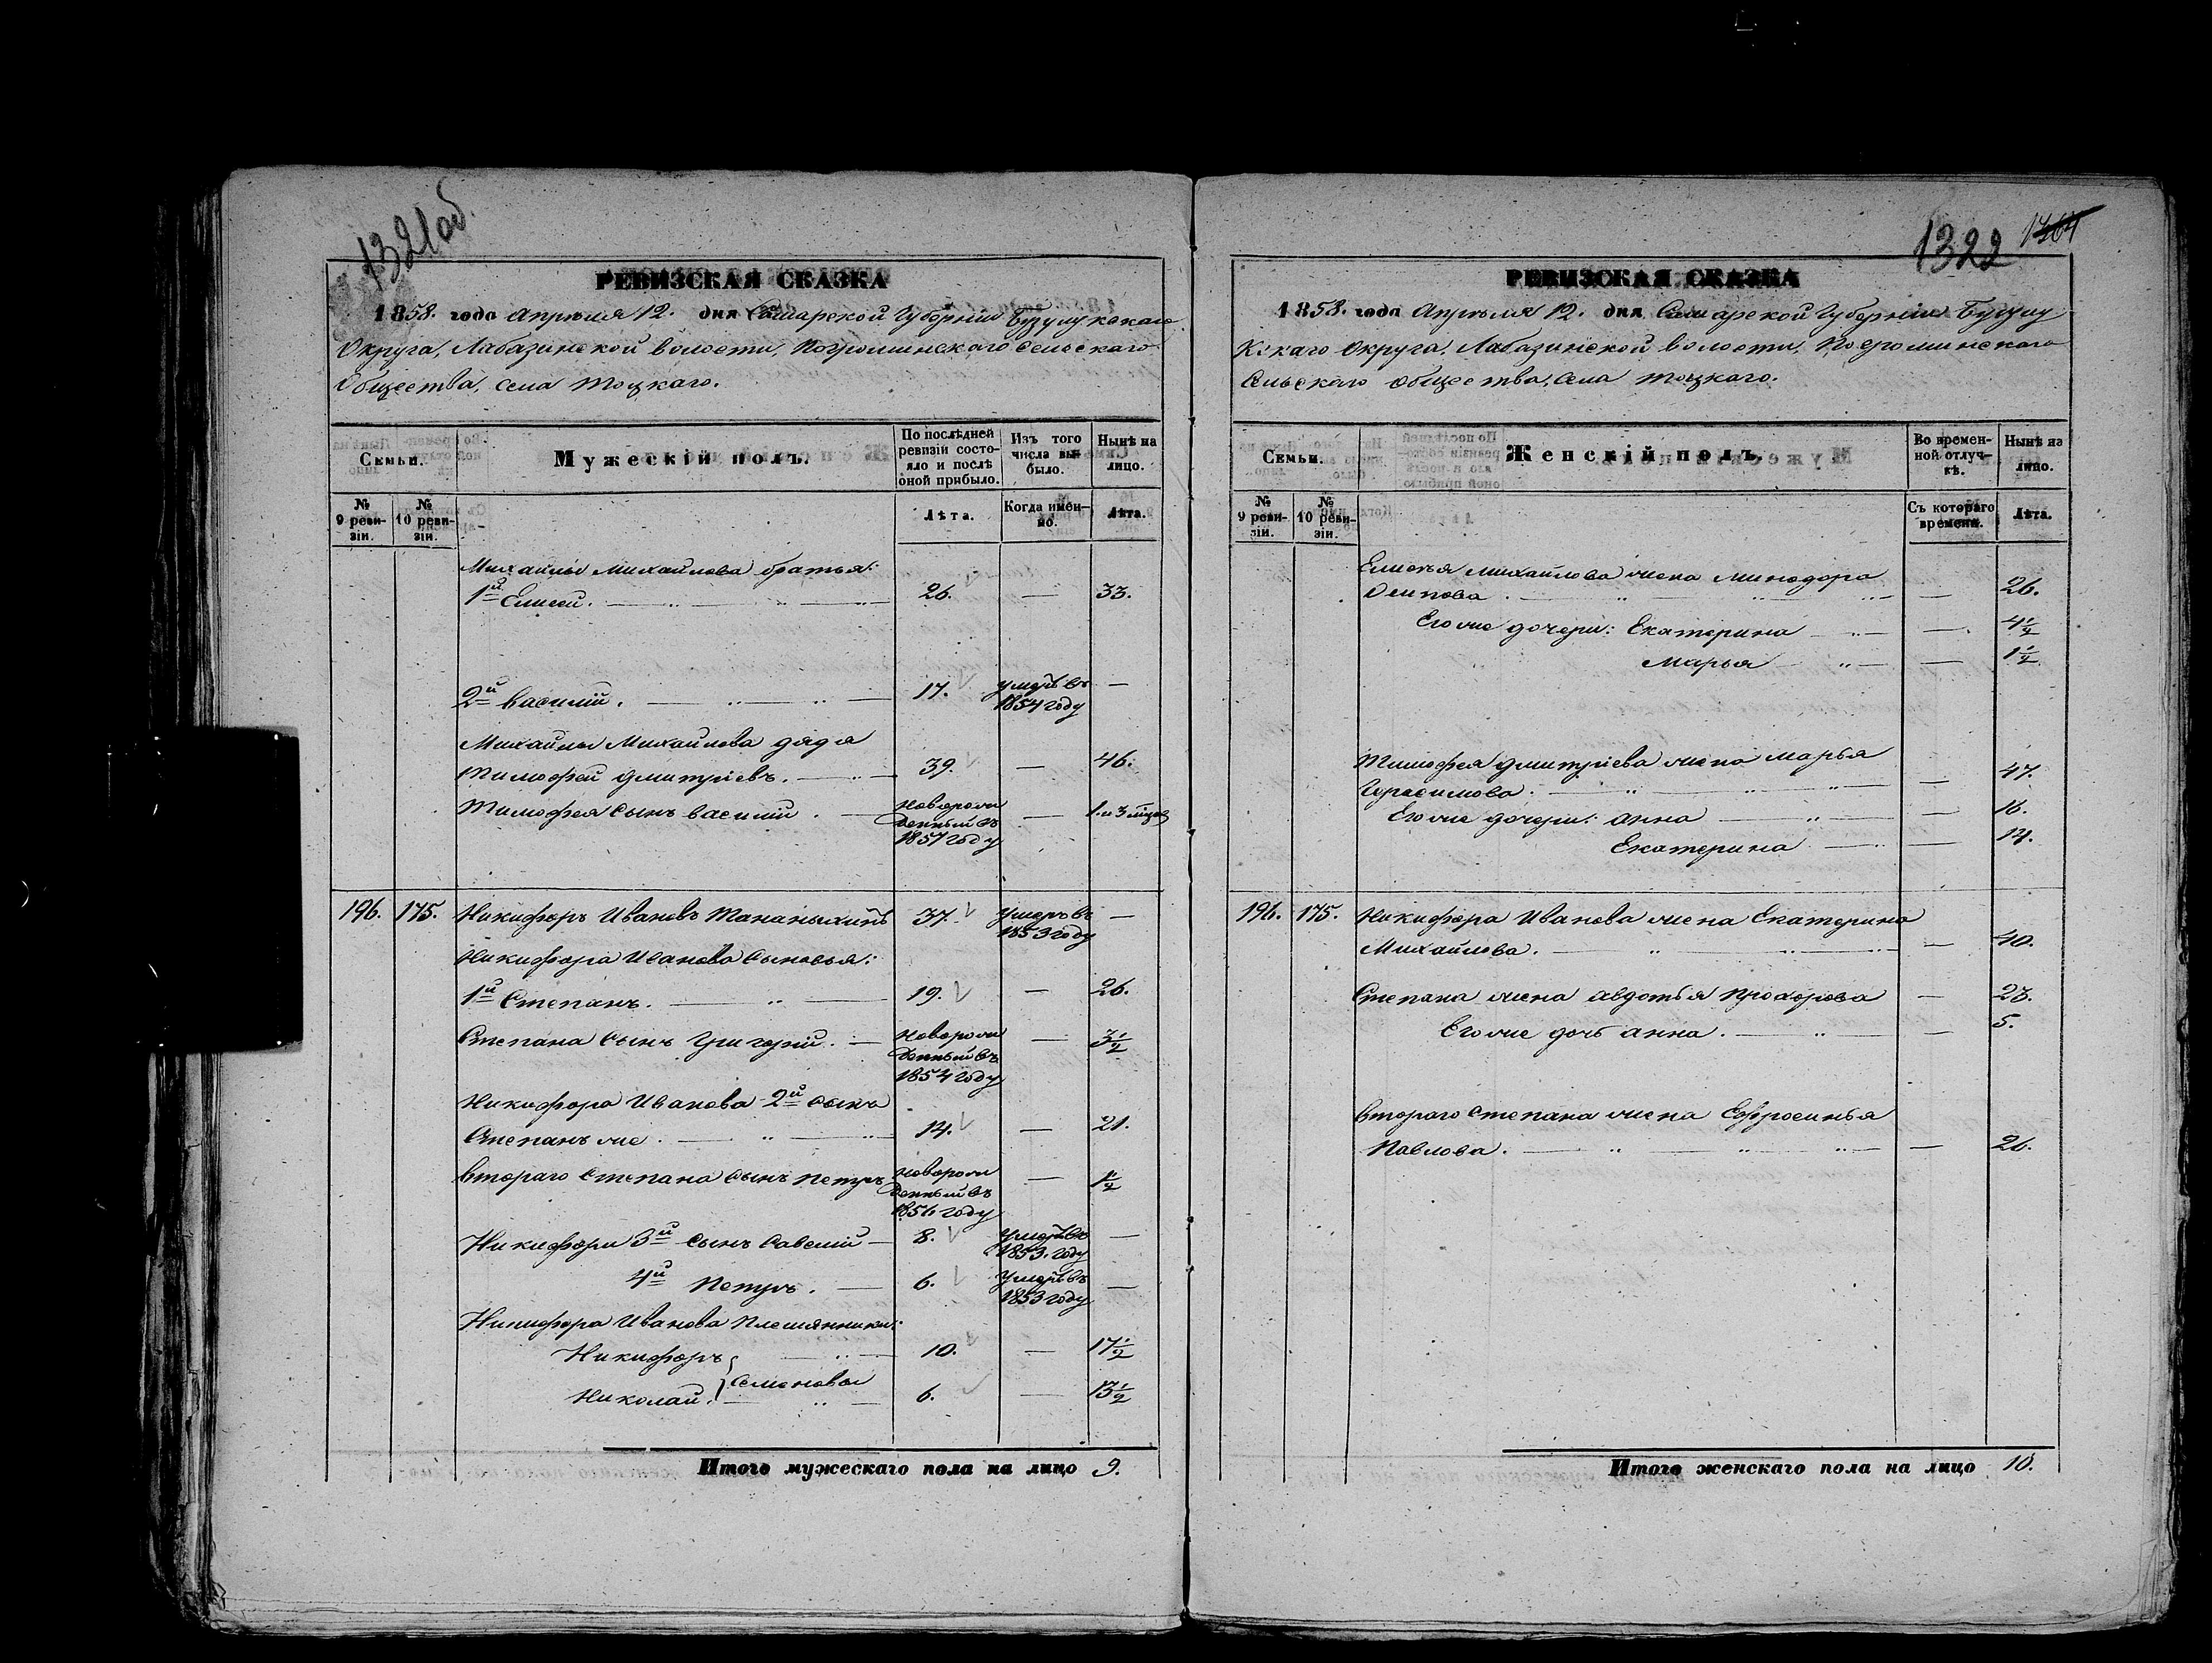 1321 об.
РЕВИЗСКАЯ СКАЗКА
1858. года Апреля 12. дня Самарской Губерніи Бузулукскаго
Округа, Лабазинской волости, Погроминскаго сельскаго
Общества, села Тоцкаго.
Семьи.
Мужескій полъ.
По послѣдней ревизіи состояло и послѣ оной прибыло.
Изъ того числа выбыло.
Нынѣ на лицо.
№ 9 ревизіи.
№ 10 ревизіи.
Лѣта.
Когда именно.
Лѣта.
Михайлы Михайлова братья:
1й Елисей. 26. — 33.
2й Василий. 17. умеръ въ 1854 году —
Михайлы Михайлова дядя
Тимофей Дмитріевъ. 39. — 46.
Тимофея сынъ Василий. новорожденный въ 1857 году — 1. и 3 мѣсяц
196. 175. Никифоръ Ивановъ Мананыхинъ 37. умеръ въ 1853 году —
Никифора Иванова сыновья:
1й Степанъ. 19. — 26.
Степана сынъ Григорий. новорожденный въ 1854 году — 3 1/2
Никифора Иванова 2й сынъ
Степанъ же. 14. — 21.
Втораго Степана сынъ Петръ новорожденный въ 1856 году — 1 1/2
Никифора 3й сынъ Савелий 8. умеръ въ 1853. году —
4й Петръ. 6. умеръ въ 1853 году —
Никифора Иванова племянники:
Никифоръ 10. — 17 1/2
Семеновы
Николай. 6. — 13 1/2
Итого мужескаго пола на лицо 9.
1322
1764
РЕВИЗСКАЯ СКАЗКА
1858. года Апрѣля 12. дня Самарской Губерніи Бузулу
кскаго Округа, Лабазинской волости, Погроминскаго
сельскаго общества, села Тоцкаго.
Семьи.
Женскій полъ.
Во временной отлучкѣ.
Нынѣ на лицо.
№ 9 ревизіи.
№ 10 ревизіи.
Съ котораго времени.
Лѣта.
Елисея Михайлова жена Минодора
Осипова. — 26.
Его же дочери: Екатерина — 4 1/2
Марья — 1 1/2
Тимофея Дмитріева жена Марья
Герасимова. — 47.
Его же дочери: Анна — 16.
Екатерина — 14.
196. 175. Никифора Иванова жена Екатерина
Михайлова. — 40.
Степана жена Авдотья Прохорова — 23.
Его же дочь Анна. — 5.
Втораго Степана жена Ефросинья
Павлова. — 21.
Итого женскаго пола на лицо 10.